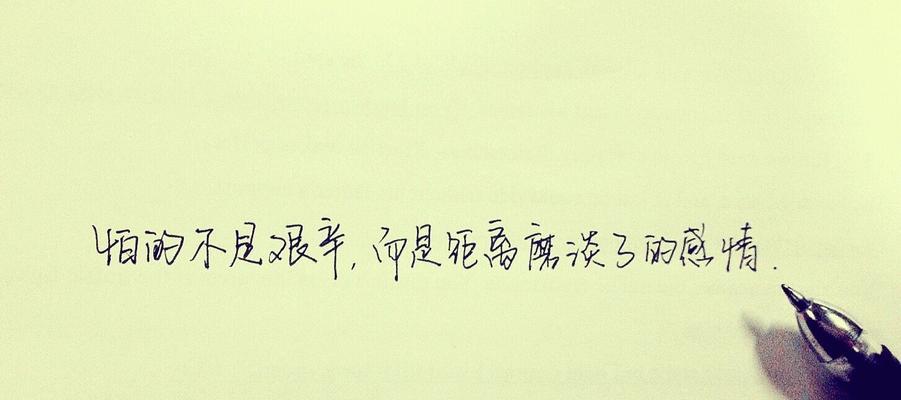 怕的不是艰辛,而是距离磨淡了的感情.